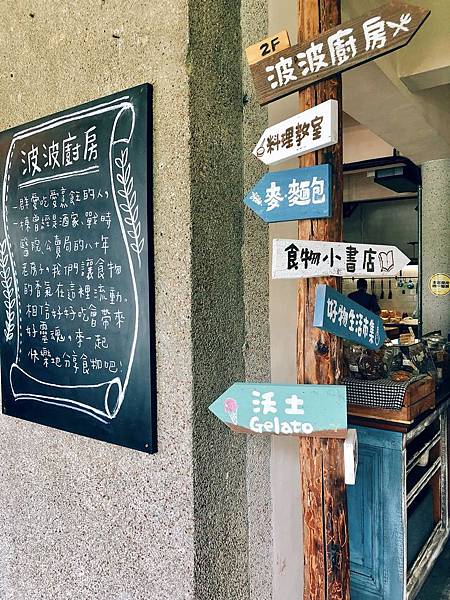 波波廚房
一群愛吃愛烹飪的人，
一棟曾經是酒家、戰時
醫院、公賣局的八十年
老房子，我們讓食物
的香氣在這裡流動。
相信好好吃會帶來
好靈魂。來一起
快樂地分享食物吧！
2F
波波廚房
料理教室
麥麵包
食物小書店
好物生活市集
沃土
Gelato